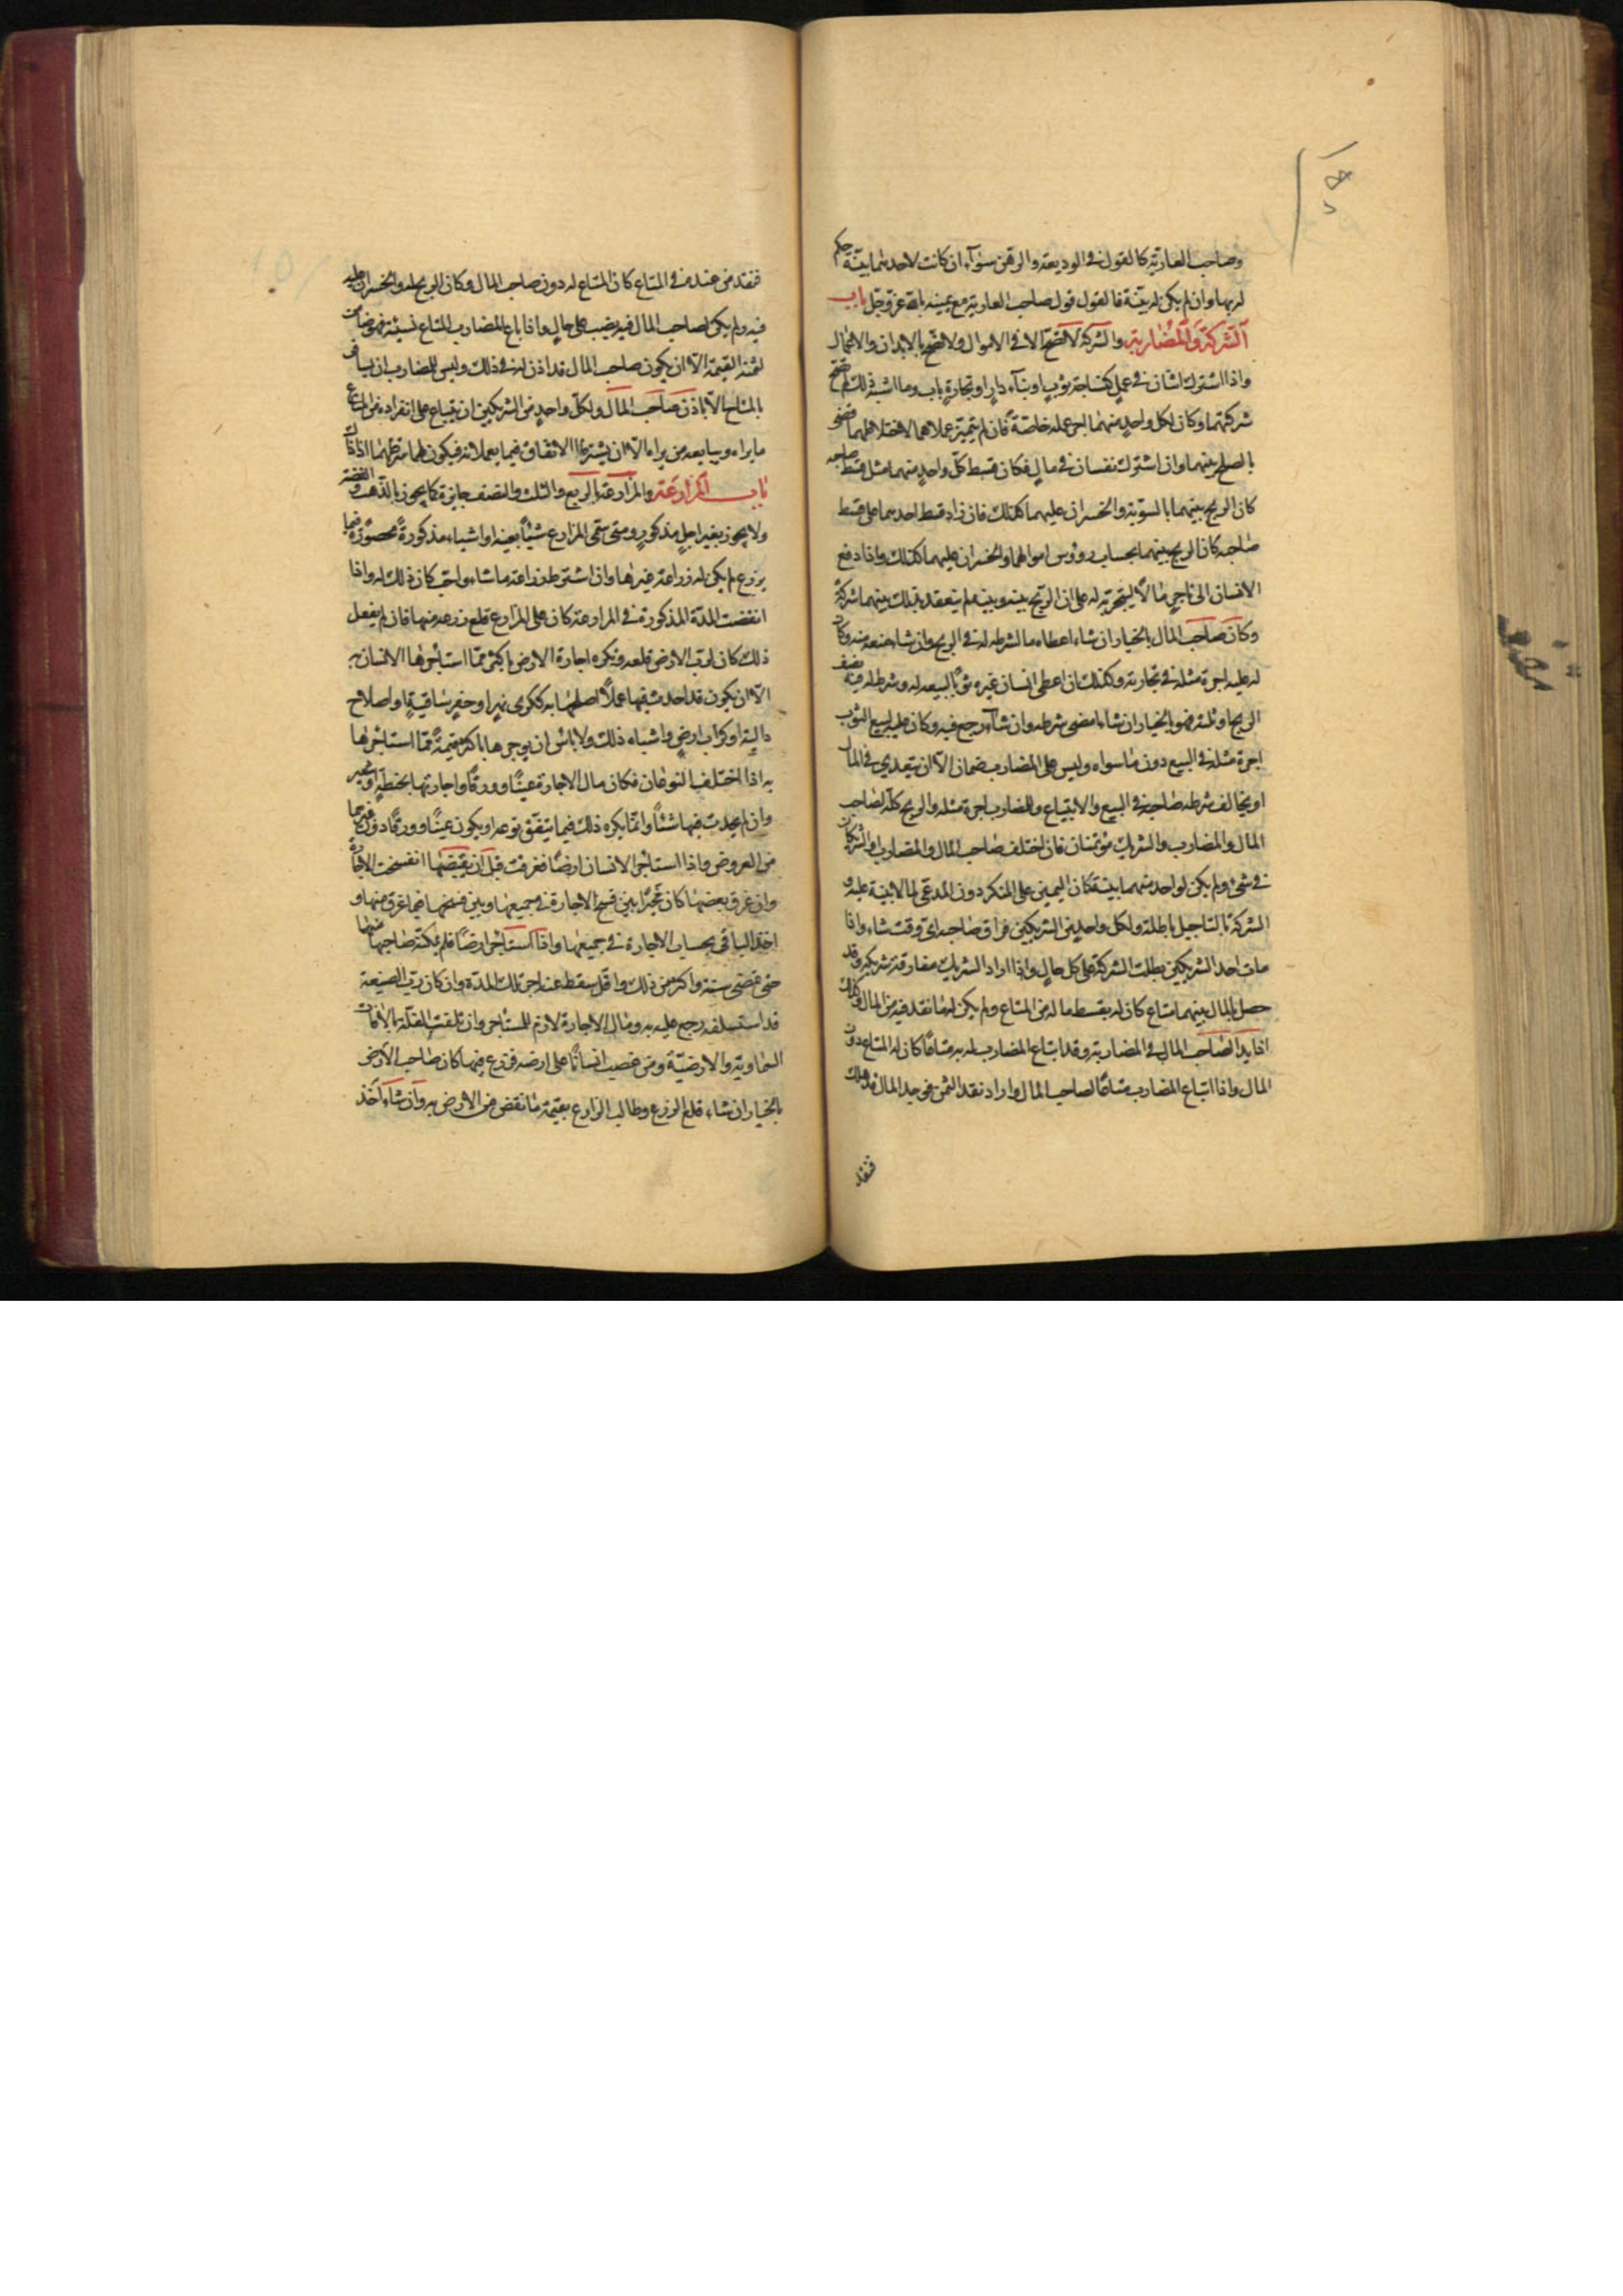 وصاحب العارية كالقول في الوديعة والرهن سوآء ان كانت لاحدهما بينة حكم
له بها وان لم يكن له بينة فالقول قول صاحب العارية مع يمينه بالله عز وجل باب
الشركة والمضاربة والشركة لا تصح الا في الاموال ولا تصح بالابدان والاعمال
واذا اشترك اثنان في عمل كنساجة ثوب او بنآء دار او تجارة باب وما اشبه ذلك لم تصح
شركتهما وكان لكل واحد منهما اجر عمله خاصة فان لم يتميز عملاهما لاختلاطهما
بالصلح بينهما وان اشترك نفسان في مال فكان قسط كل واحد منهما مثل قسط صاحبه
كان الربح بينهما بالسوية والخسران عليهما كذلك فان زاد قسط احدهما على قسط
صاحبه كان الربح بينهما بحساب رؤوس اموالهما والخسران عليهما كذلك واذا دفع
الانسان الى تاجر مالا ليتجر به له على ان الربح بينه وبينه لم ينعقد بذلك بينهما شركة
وكان صاحب المال بالخيار ان شاء اعطاه ما اشرطه له في الربح وان شاء منعه منه وكان
له عليه اجرة مثله في تجارته وكذلك ان اعطى انسان غيره ثوبا ليبيعه له وشرط له فيه نصف
الربح او ثلثه فهو بالخيار ان شاء امضى شرطه وان شآء رجع فيه وكان عليه لبيع الثوب
اجرة مثله في البيع دون ما سواه وليس على المضارب ضمان الا ان يتعدى في المال
او يخالف شرطه صاحبه في البيع والابتياع وللمضارب اجرة مثله والربح كله لصاحب
المال والمضارب والشريك مؤتمنان فان اختلف صاحب المال والمضارب او الشريكان
في شئ ولم يكن لواحد منهما بينة كان اليمين على المنكر دون المدعى لما لا بينة عليه و
الشركة بالتاجيل باطلة ولكل واحد من الشريكين فراق صاحبه اى وقت شاء واذا
مات احد الشريكين بطلت الشركة على كل حال واذا اراد الشريك مفارقة شريكه وقد
حصل بالمال بينهما متاع كان له بقسط ماله من المتاع ولم يكن له ما نقد فيه من المال وكذلك
اذا بدا لصاحب المال في المضاربة وقد ابتاع المضارب له به متاعا كان له المتاع دون
المال واذا ابتاع المضارب متاعا لصاحب المال واراد نقد الثمن فوجد المال قد هلك
فنقد
فنقد من عنده في المتاع كان المتاع له دون صاحب المال وكان الربح له والخسران عليه
فيه ولم يكن لصاحب المال فيه نصيب على حال واذا باع المضارب المتاع نسيئة فهو ضامن
لثمنه القيمة الا ان يكون صاحب المال قد اذن له في ذلك وليس للمضارب ان يسافر
بالمتاع الا باذن صاحب المال ولكل واحد من الشريكين ان يبتاع على انفراده من المتاع
ما يراه ويبايعه من يراه الا ان يشترطا الاتفاق فيما يعملانه فيكون لهما شرطهما اذ ذاك
باب المزارعة والمزارعة بالربع والثلث والنصف جايزة كما يجوز بالذهب والفضة
ولا يجوز بغير اجل مذكور ومتى سمى المزارع شيئا بعينه او اشياء مذكورة محصورة فيما
يزرع لم يكن له زراعة غيرها وان اشترط زراعة ما شاء واحب كان ذلك له واذا
انقضت المدة المذكورة في المزارعة كان على المزارع قلع زرعه منها فان لم يفعل
ذلك كان لرب الارض قلعه ويكره اجارة الارض باكثر مما استاجرها الانسان به
الا ان يكون قد احدث فيها عملا اصلحها به ككرى نهر او حفر ساقية او اصلاح
دالية او كراب ارض واشباه ذلك ولا باس ان يوجرها باكثر قيمة مما استاجرها
به اذا اختلف النوعان فكان مال الاجارة عينا وورقا واجارتها بحنطة او شعير
وان لم يحدث فيها شئا وانما يكره ذلك فيما يتفق نوعه او يكون عينا وورقا دون غيرهما
من العروض واذا استاجر الانسان ارضا فغرقت قبل ان يقبضها انفسخت الاجارة
وان غرق بعضها كان مخيرا بين فسخ الاجارة في جميعها وبين فسخها فيما غرق منها و
اخذ الباقى بحساب الاجارة في جميعها واذا استاجر ارضا فلم يمكنه صاحبها منها
حتى تمضى سنة واكثر من ذلك واقل سقط عنه اجر تلك المدة وان كان رب الضيعة
قد استسلفه رجع عليه به ومال الاجارة لازم للمستاجر وان تلفت الغلة بالافات
السماوية والارضية ومن غصب انسانا على ارضه فزرع فيها كان صاحب الارض
بالخيار ان شاء قلع الزرع وطالب الزارع بقيمة ما نقص من الارض به وان شاء اخذ